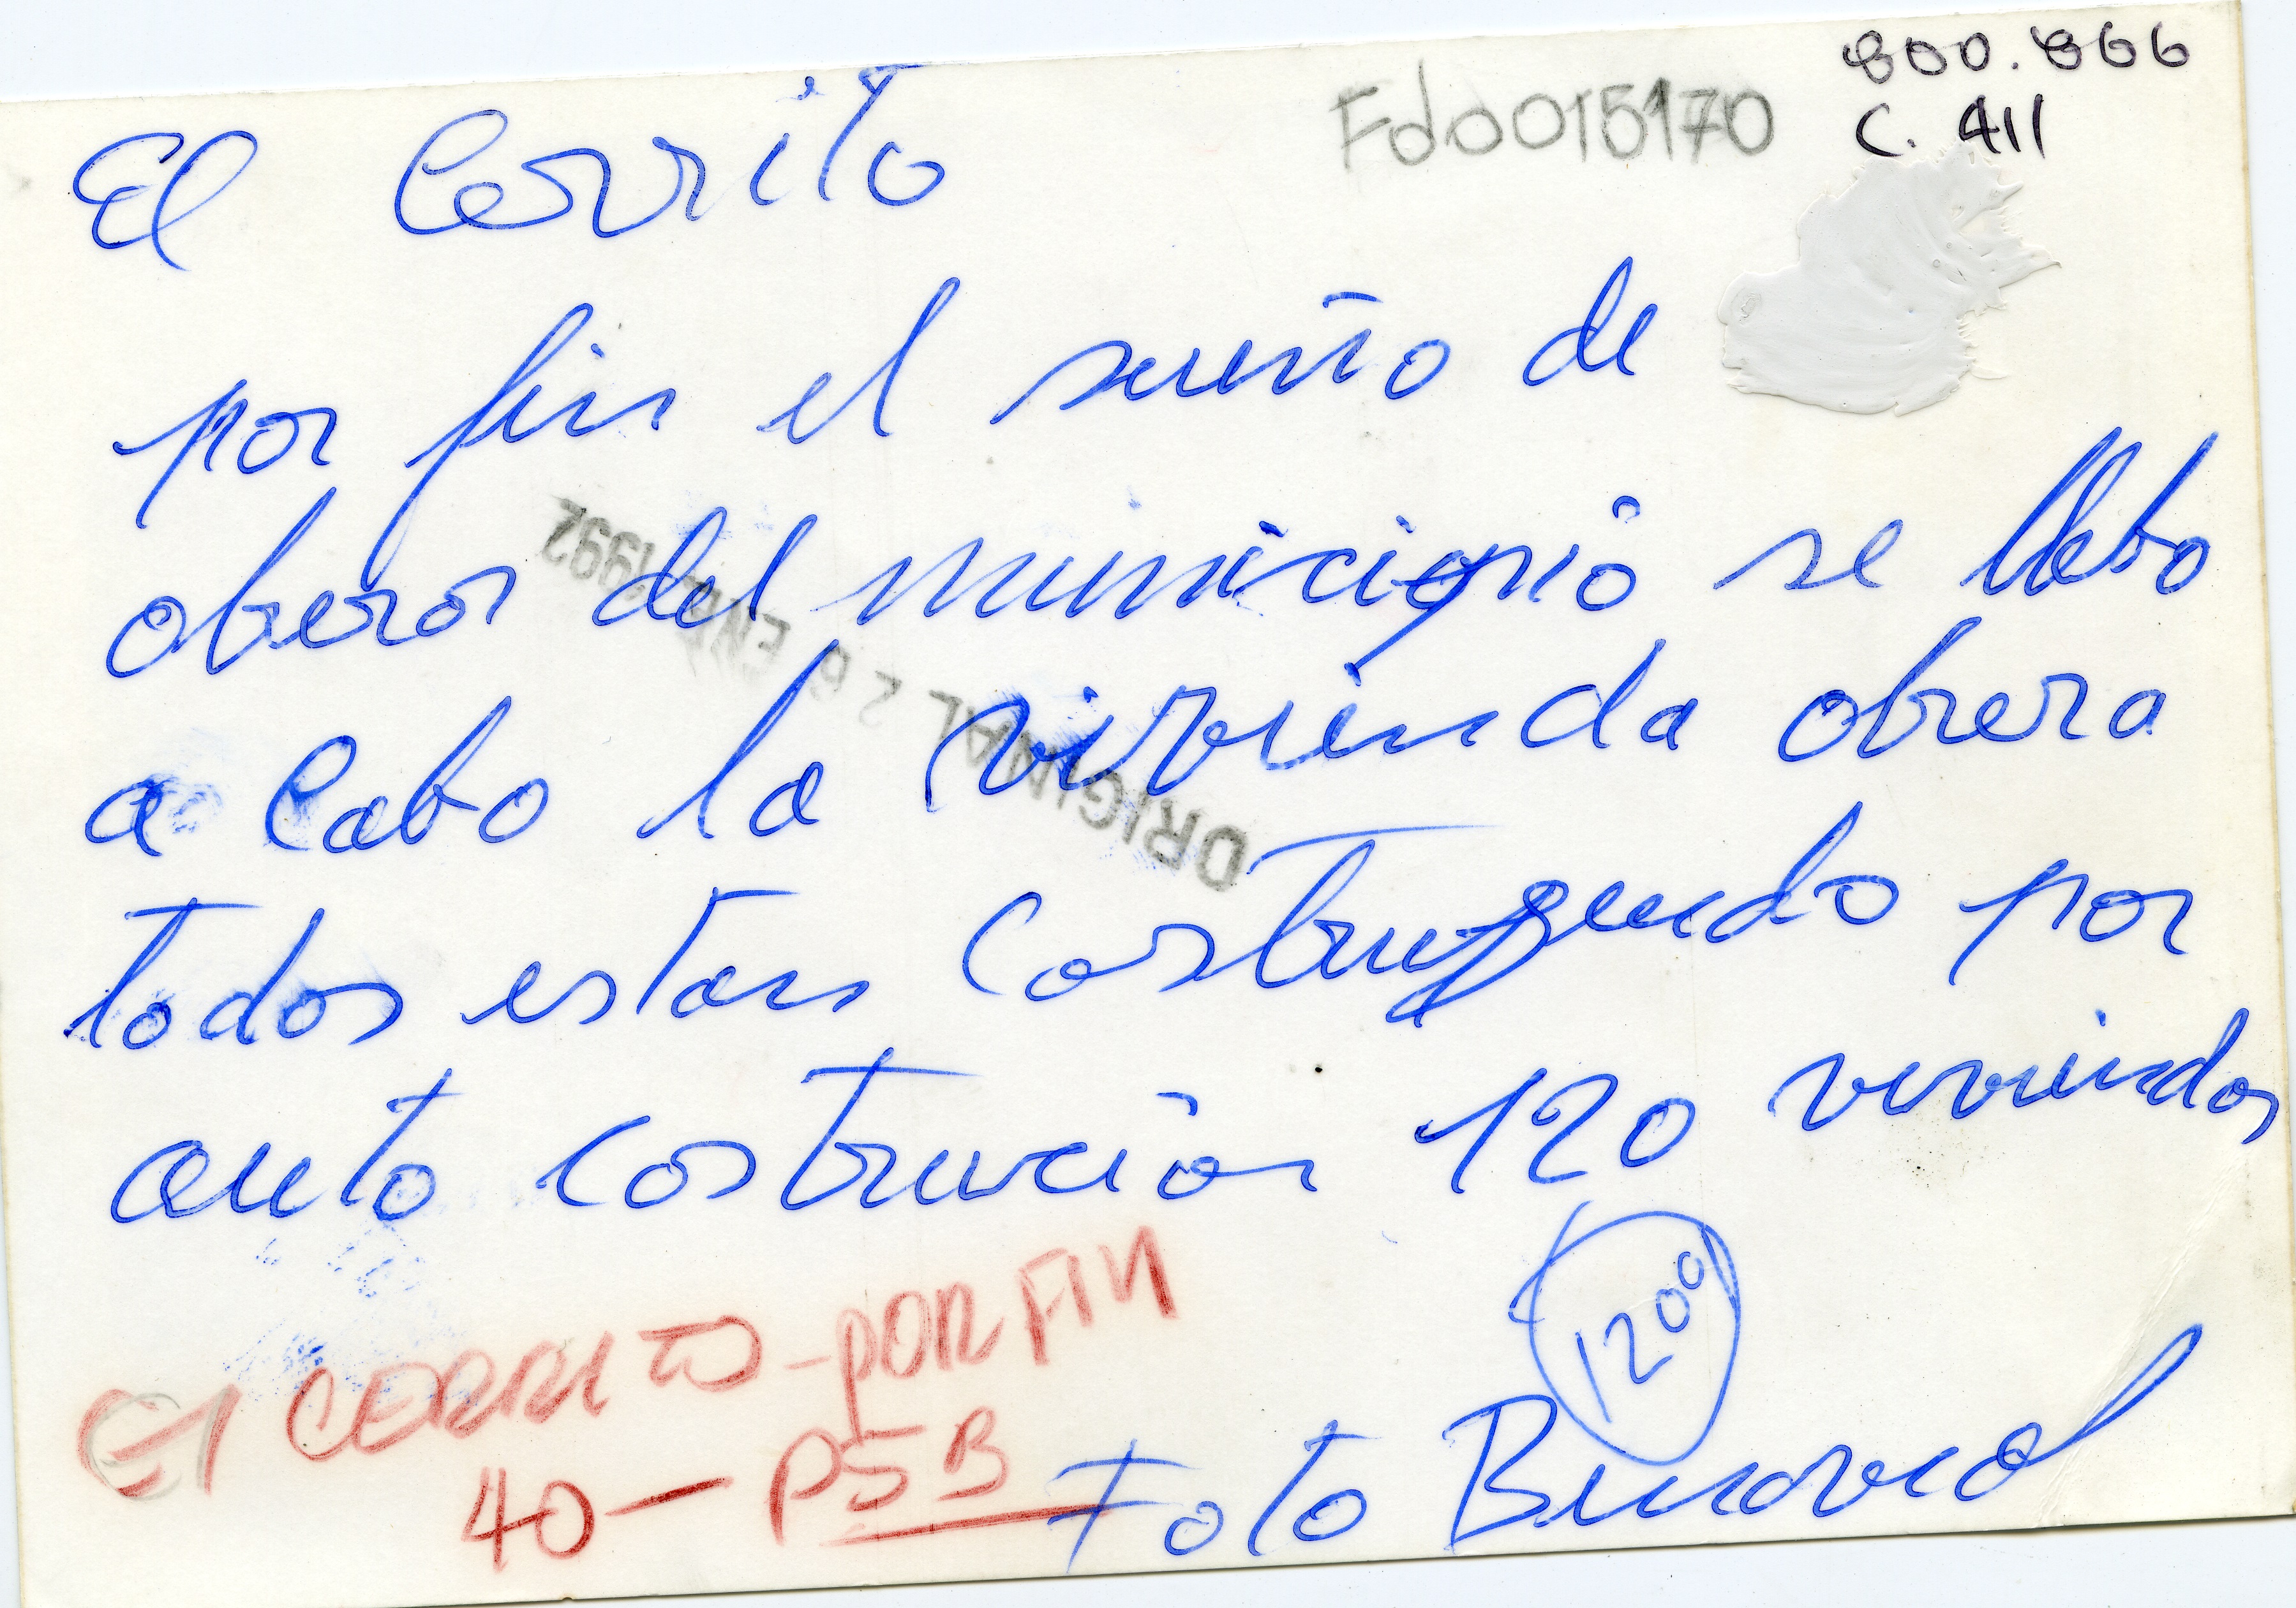 800.866
Fdo015170 C. 411
El Cerrito
por fin el sueño de
obreros del municipio se llebo
a Cabo la vivienda obrera
todos estan Costruyendo por
auto costrucion 120 viviendas
1200
ORIGINAL 26 ENE 1992
El CERRITO - POR FIN
40 — PSB
Foto